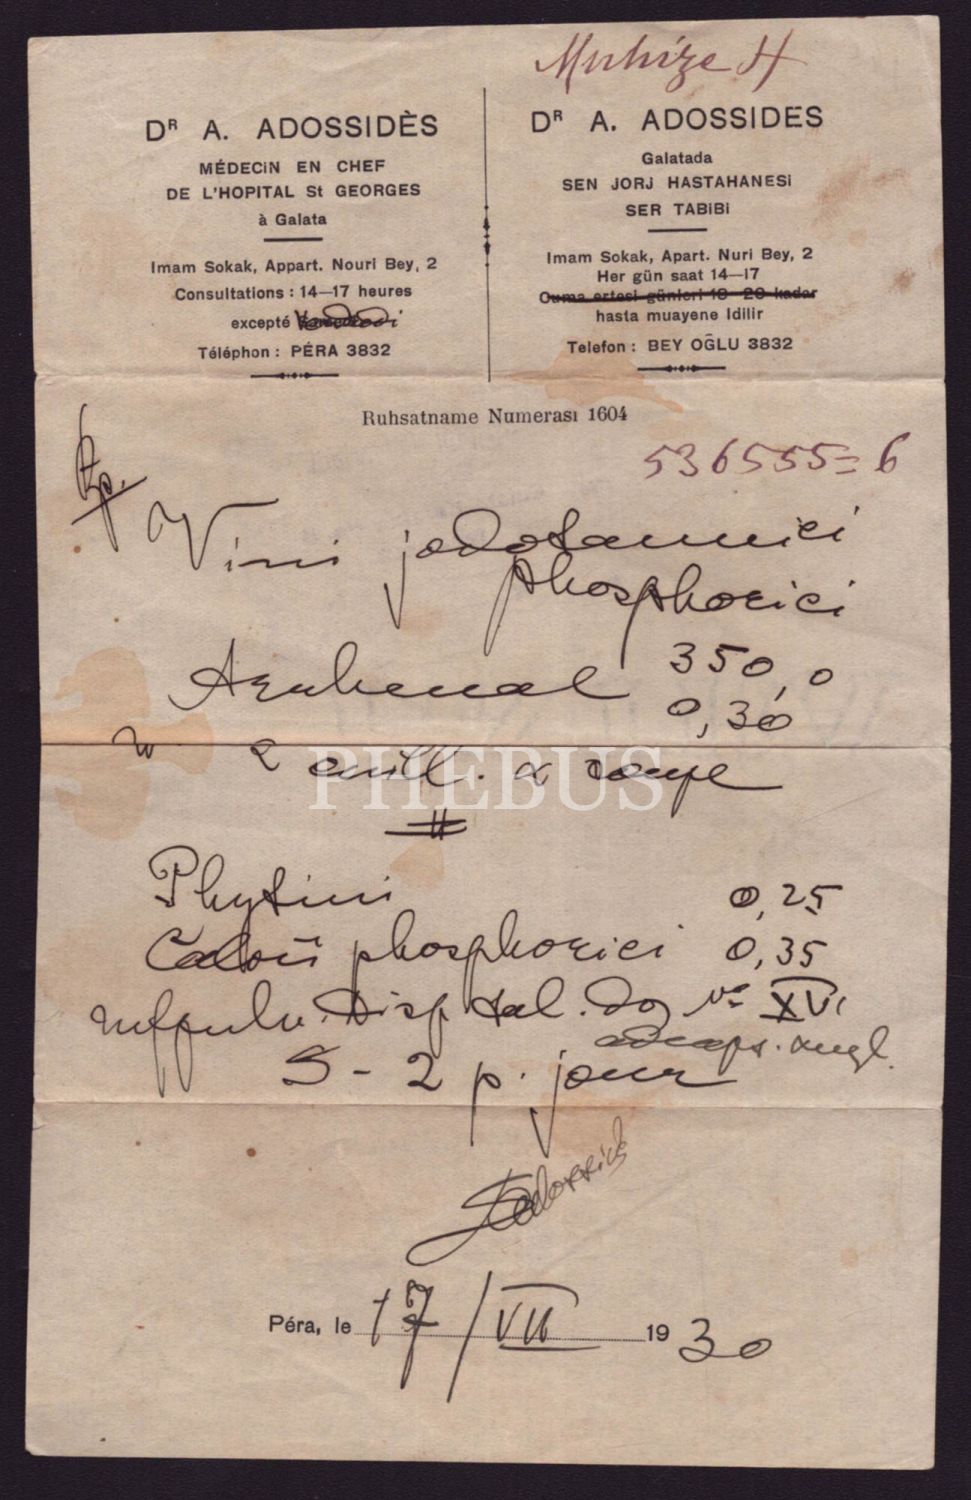 Muhize H
DR A. ADOSSIDÈS
MÉDECiN EN CHEF
DE L'HOPITAL St GEORGES
à Galata
Imam Sokak, Appart. Nouri Bey, 2
Consultations : 14—17 heures
excepté Vendredi
Téléphon : PÉRA 3832
DR A. ADOSSIDES
Galatada
SEN JORJ HASTAHANESi
SER TABiBi
Imam Sokak, Apart. Nuri Bey, 2
Her gün saat 14—17
Cuma ertesi günleri 18—20 kadar
hasta muayene Idilir
Telefon : BEY OĞLU 3832
Ruhsatname Numerası 1604
536555=6
Rp.
Vini jodotannici
phosphorici
350,0
Arrhenal 0,30
2 cuill. a soupe
PHEBUS
Phytini 0,25
Calcii phosphorici 0,35
Disp. tal. dos No XVI
ad caps. amyl.
S - 2 p. jour
Péra, le 17/VII 1930